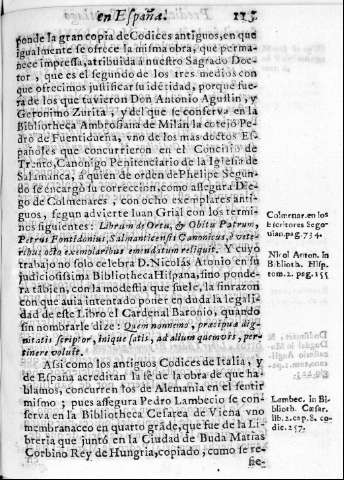 en España. 115.
ponde la gran copia de Codices antiguos, en que
igualmente se ofrece la misma obra, que perma-
nece impressa, atribuida à nuestro Sagrado Doc-
tor, que es el segundo de los tres medios con
que ofrecimos justificar su idẽtidad, porque fue-
ra de los que tuvieron Don Antonio Agustin, y
Geronimo Zurita, y del que se conserva en la
Bibliotheca Ambrosiana de Milàn la cotejò Pe-
dro de Fuentidueña, vno de los mas doctos Es-
pañoles que concurrieron en el Concilio de
Trento, Canonigo Penitenciario de la Iglesia de
Salamanca, à quien de orden de Phelipe Segun-
do se encargò su correccion, como assegura Die-
go de Colmenares, con ocho exemplares anti-
guos, segun advierte Iuan Grial con los termi-
nos siguientes: Librum de Ortu, & Obitu Patrum,
Petrus Pontidonius, Salmanticensis Canonicus, è vete-
ribus octo exemplaribus emendatum reliquit. Y cuyo
trabajo no solo celebra D. Nicolàs Atonio en su
judiciosissima Bibliotheca Hispana, sino ponde-
ra tãbien, con la modestia que suele, la sinrazon
con que avia intentado poner en duda la legali-
dad de este Libro el Cardenal Baronio, quando
sin nombrarle dize: Quem nonnemo, præcipua dig-
nitatis scriptor, inique satis, ad alium quemvis, per-
tinere voluit.
Assi como los antiguos Codices de Italia, y
de España acreditan la fè de la obra de que ha-
blamos, concurren los de Alemania en el sentir
mismo; pues assegura Pedro Lambecio se con-
serva en la Bibliotheca Cesarea de Viena vno
membranaceo en quarto grãde, que fue de la Li-
breria que juntò en la Ciudad de Buda Matias
Corbino Rey de Hungria, copiado, como se re-
fie-
Colmenar. en los
Escritores Sego-
vian. pag. 734.
Nicol Anton. in
Biblioth. Hisp.
tom. 2. pag. 155
Lambec. in Bi-
blioth. Cæsar.
lib. 2. cap. 8. co-
dic. 257.